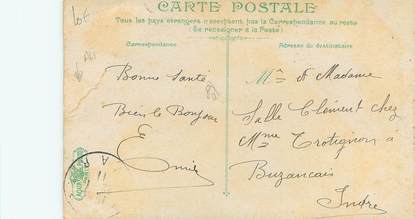 CARTE POSTALE
Tous les pays étrangers n'acceptent pas la Correspondance au recto
(Se renseigner à la Poste)
Correspondance
Adresse du destinataire
Lot
Bonne Santé
Bien le Bonjour
Mr & Madame
Salle Clément chez
Mme Trotignon à
Buzançais
Indre